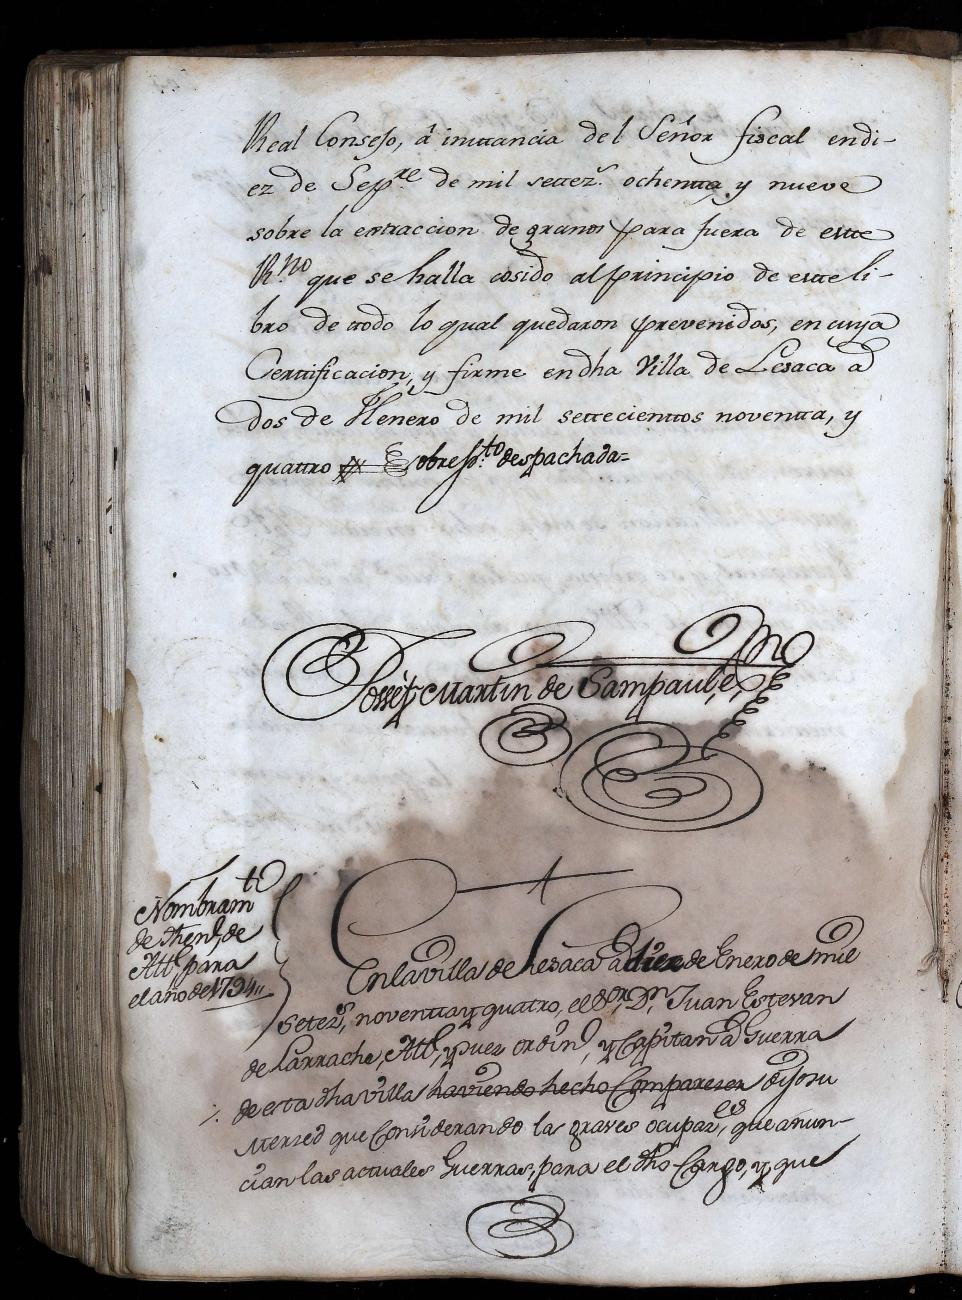 Real Consejo, â instancia del Señor fiscal en di-
ez de Sepre de mil settezs. ochentta y nueve
sobre la extraccion de granos para fuera de este
Rno que se halla cosido al principio de este li-
bro de todo lo qual quedaron prevenidos, en cuya
Certificacion, y firme en dha Villa de Lesaca a
dos de Henero de mil settecienttos noventta, y
quattro Sobrepto. despachada=
Josseph Martin de Sampaul
Nombramto
de Then.e de
Alle. para
el año de 1794
En la villa de Lesaca a diez de Enero de mil
setezs. noventta y quatro, el Sor. Dn. Juan Estevan
de Larrache, Alle. y Juez ordino. y Capitan â Guerra
de esta dha villa haviendo hecho Comparezer dijo su
Merzed que Considerando las graves ocupaes. que anun-
cian las actuales Guerras, para el dho Cargo, y que